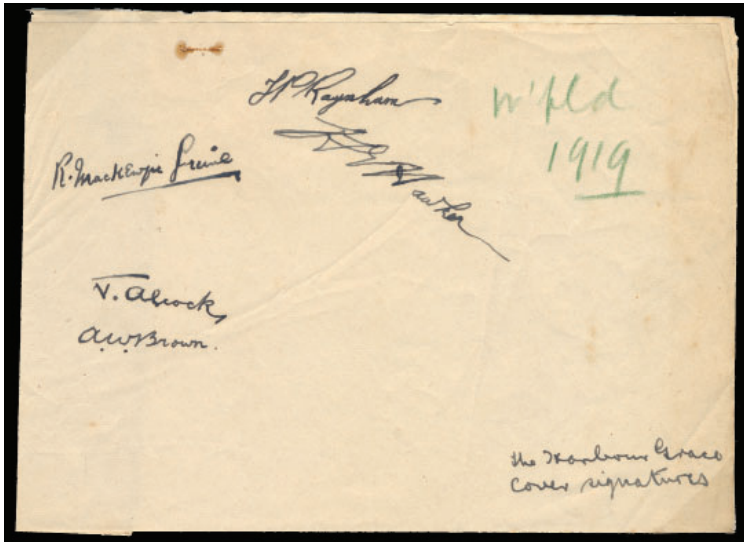 F P Raynham
N'fld
1919
H G Hawker
R. MacKenzie Grieve
J. Alcock
A.W. Brown.
the Harbour Grace
cover signatures